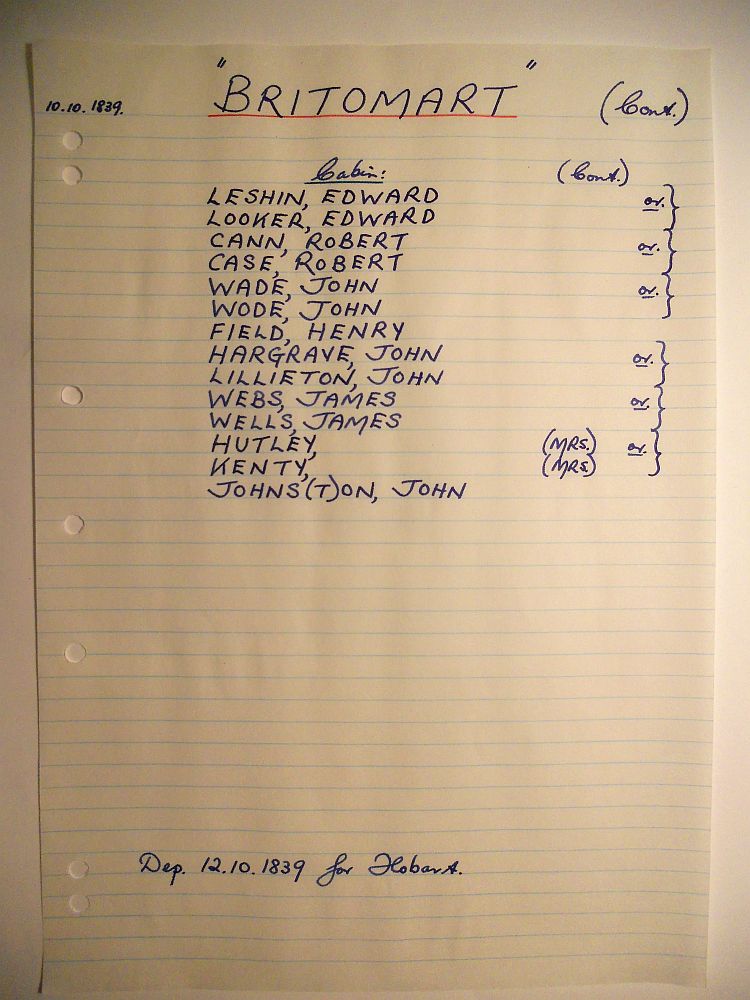 10.10.1839. "BRITOMART" (Cont.)
Cabin: (Cont.)
LESHIN, EDWARD or. }
LOOKER, EDWARD
CANN, ROBERT or. }
CASE, ROBERT
WADE, JOHN or. }
WODE, JOHN
FIELD, HENRY
HARGRAVE, JOHN or. }
LILLIETON, JOHN
WEBS, JAMES or. }
WELLS, JAMES
HUTLEY, (MRS.) or. }
KENTY, (MRS.)
JOHNS(T)ON, JOHN
Dep. 12.10.1839 for Hobart.